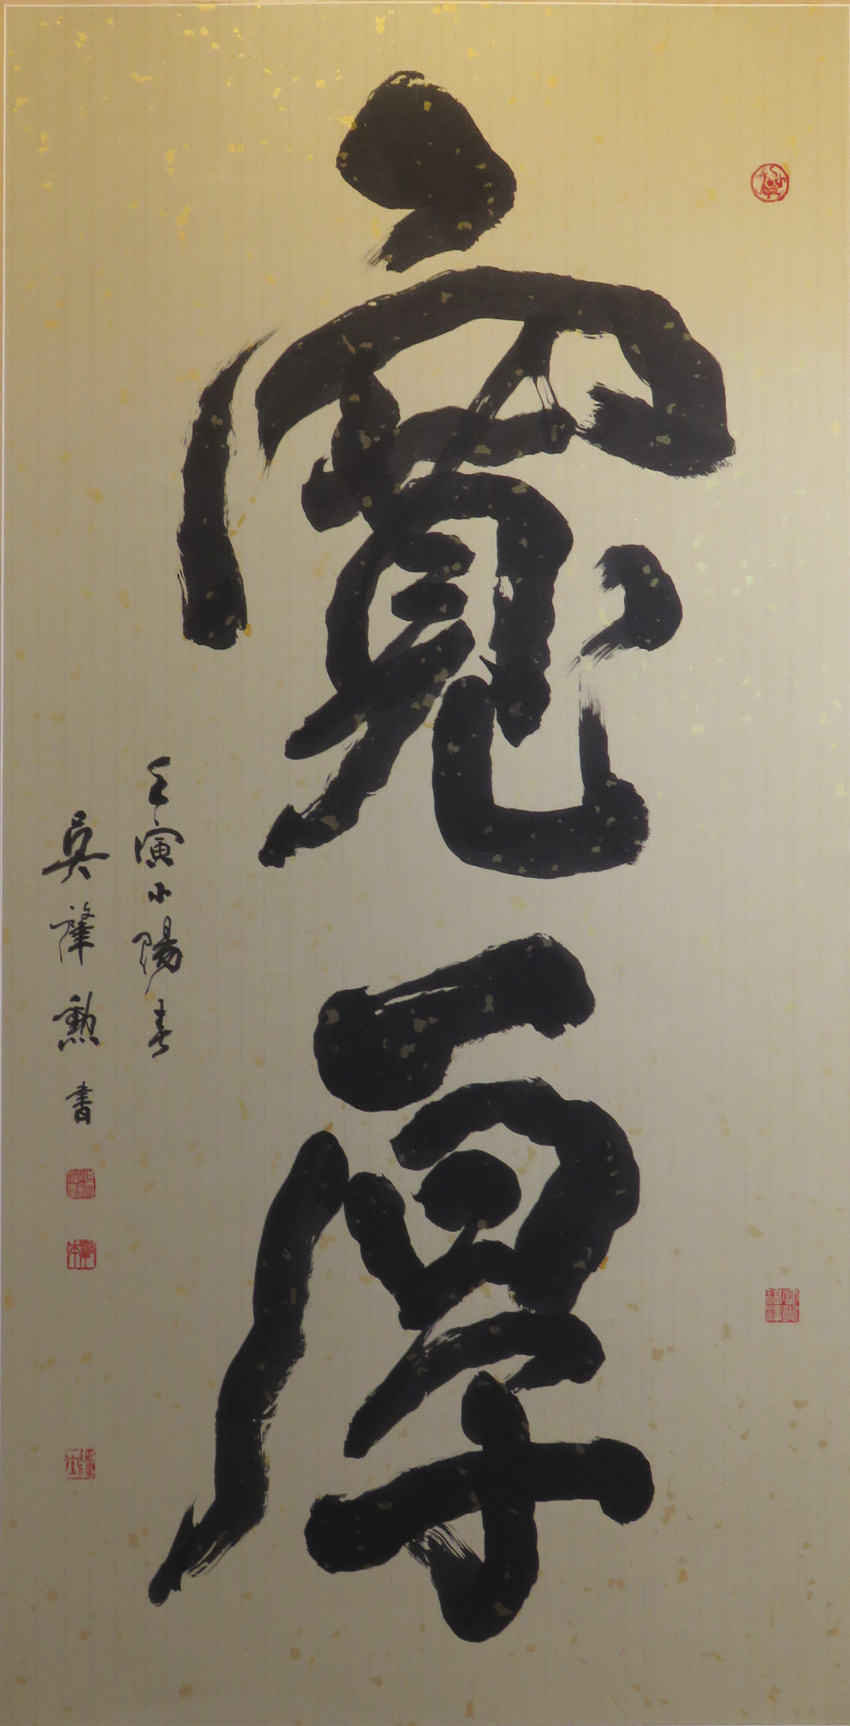 寬厚
壬寅小陽春
吳肇勳書